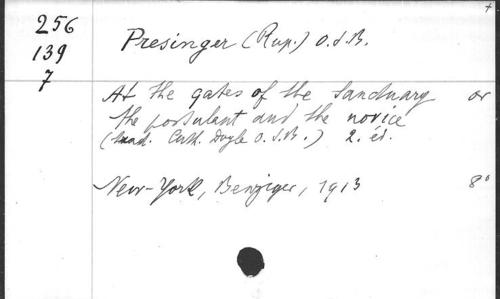 +
256
139
7
Presinger (Rup.) O.S.B.
At the gates of the Sanctuary or
the postulant and the novice
(trad. Cuth. Doyle O.S.B.) 2. éd.
New-York, Benziger, 1913 8°